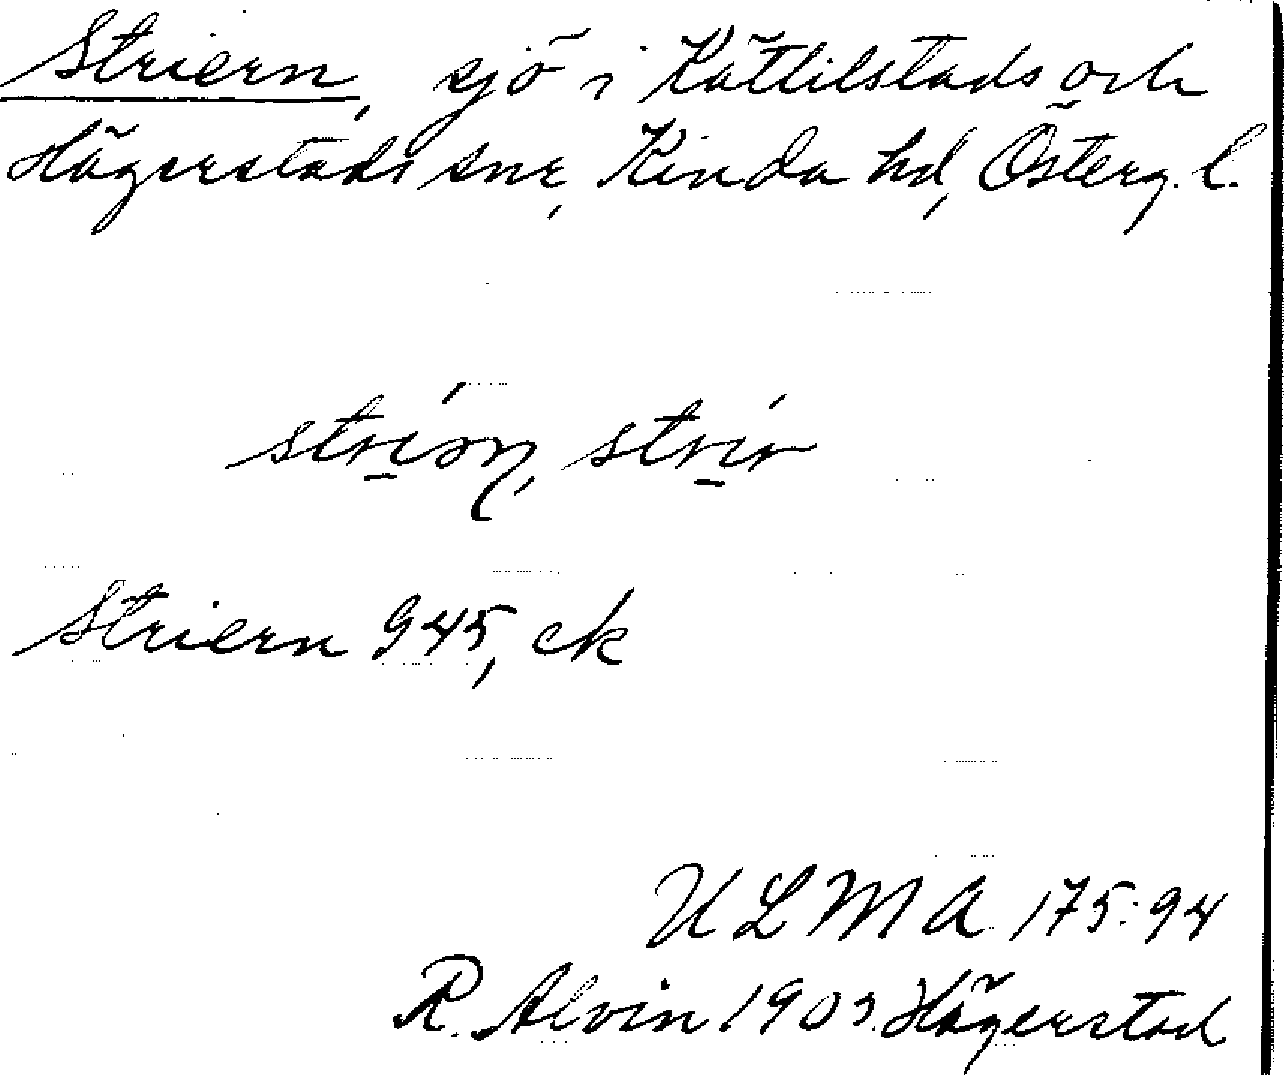 Striern, sjö i Kättilstads och
Hägerstads snr, Kinda hd, Österg. l.
Striern 945, ck
ULMA 175:94
R. Alvin 1903. Hägerstad